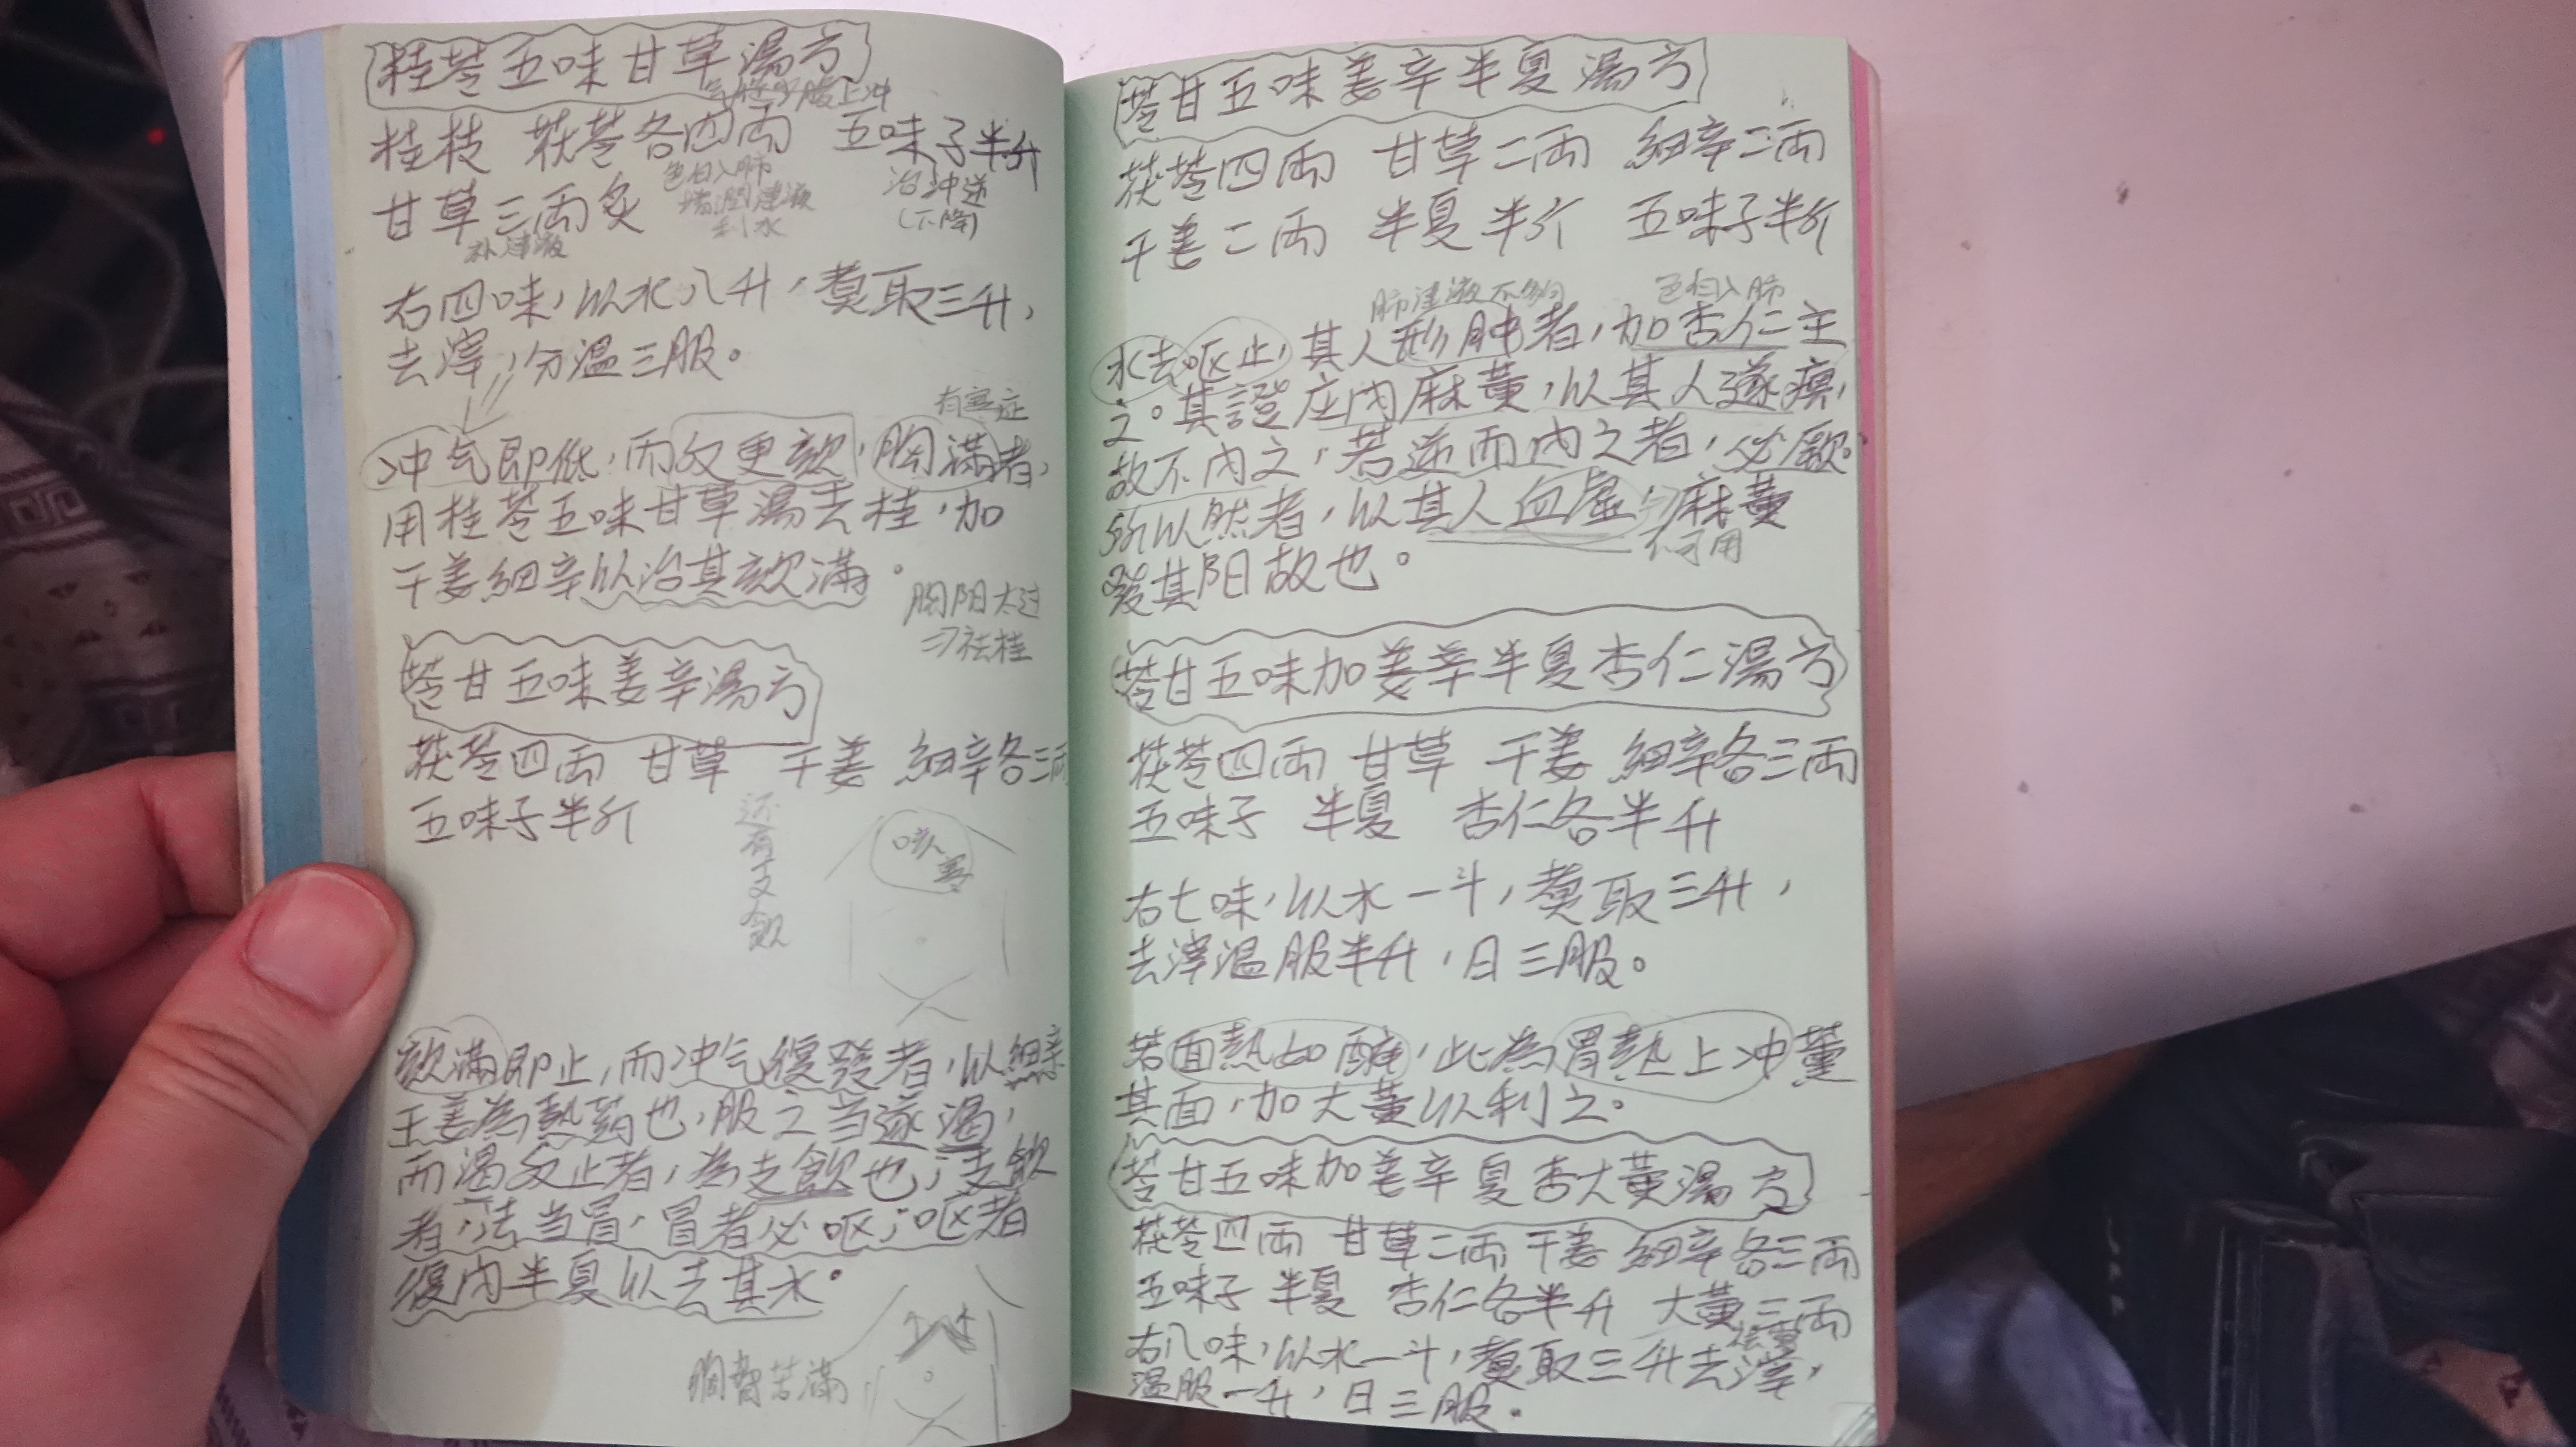 桂苓五味甘草湯方
桂枝 茯苓各四兩 五味子半斤
色白入肺
增潤津液
利水
治沖逆
(下降)
甘草三兩炙
补津液
右四味,以水八升,煮取三升,
去滓,分溫三服。
有寒症
冲气即低,而反更欬,胸滿者,
用桂苓五味甘草湯去桂,加
干姜細辛以治其欬滿。
胸阳太过
习祛桂
苓甘五味姜辛湯方
茯苓四兩 甘草 干姜 細辛各三兩
五味子半斤
还有支飲
咳
欬滿即止,而冲气復發者,以細辛
干姜為熱葯也,服之当遂渴,
而渴反止者,為支飲也;支飲
者,法当冒,冒者必呕;呕者
復內半夏以去其水。
胸脅苦滿
苓甘五味姜辛半夏湯方
茯苓四兩 甘草二兩 細辛二兩
干姜二兩 半夏半斤 五味子半斤
肺津液不夠 色白入肺
水去呕止,其人形肿者,加杏仁主
之。其證应內麻黄,以其人遂痹,
故不內之,若逆而內之者,必厥。
所以然者,以其人血虛,麻黄
不可用
發其阳故也。
苓甘五味加姜辛半夏杏仁湯方
茯苓四兩 甘草 干姜 細辛各三兩
五味子 半夏 杏仁各半升
右七味,以水一斗,煮取三升,
去滓溫服半升,日三服。
若面熱如醉,此為胃熱上冲薰
其面,加大黄以利之。
苓甘五味加姜辛夏杏大黄湯方
茯苓四兩 甘草二兩 干姜 細辛各三兩
五味子 半夏 杏仁各半升 大黄三兩
右八味,以水一斗,煮取三升去滓,
溫服一升,日三服。